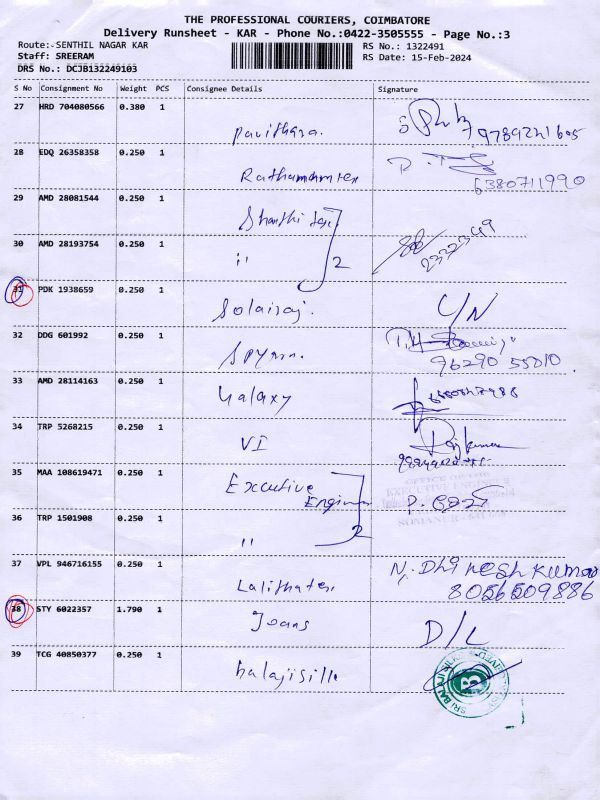 THE PROFESSIONAL COURIERS, COIMBATORE
Delivery Runsheet - KAR - Phone No.:0422-3505555 - Page No.:3
Route: SENTHIL NAGAR KAR
RS No.: 1322491
Staff: SREERAM
RS Date: 15-Feb-2024
DRS No.: DCJB132249103
S No Consignment No Weight PCS Consignee Details Signature
27 HRD 704080566 0.380 1
Pavithara.
28 EDQ 26358358 0.250 1
6380711990
29 AMD 28081544 0.250 1
Shanthi tex
30 AMD 28193754 0.250 1
" 2
31 PDK 1938659 0.250 1
Solairaj.
32 DDG 601992 0.250 1
96290 55010.
33 AMD 28114163 0.250 1
Galaxy
34 TRP 5268215 0.250 1
VI
Rajkumar
35 MAA 108619471 0.250 1
Executive
Engineer
36 TRP 1501908 0.250 1
" 2
37 VPL 946716155 0.250 1
N. Dhinesh kumar
8056509886
38 STY 6022357 1.790 1
Joans
D/L
39 TCG 40850377 0.250 1
balajisilk
SRI BALAJI SILK
B